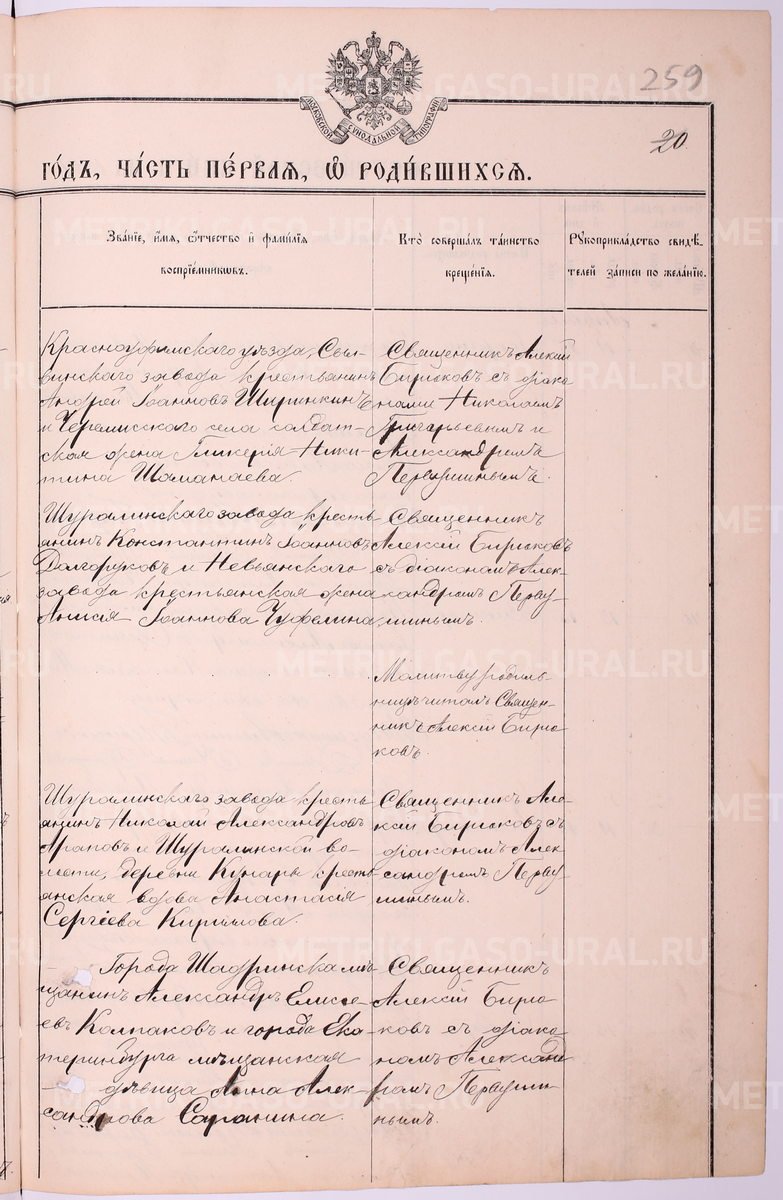 259
20.
МОСКОВСКОЙ СѴНОДАЛЬНОЙ ТИПОГРАФІИ
ГО́ДЪ, ЧА́СТЬ ПЕ́РВАѦ, Ѡ҆ РОДИ́ВШИХСѦ.
Зва́нїе, и҆́мѧ, ѻ҆́тчество и҆ фами́лїѧ
воспрїе́мниковъ.
Кто̀ соверша́лъ та́инство
креще́нїѧ.
Рꙋкоприкла́дство свидѣ́-
телей за́писи по жела́нїю.
Красноуфимскаго уѣзда, Сыл-
винскаго завода крестьянинъ
Андрей Іоанновъ Ширинкинъ
и Черемисскаго села солдат-
ская жена Гликерія Ники-
тина Шаманаева.
Священникъ Алексій
Бирюковъ съ діако-
нами Николаемъ
Григорьевымъ и
Александромъ
Первушинымъ.
Шуралинскаго завода кресть-
янинъ Константинъ Іоанновъ
Долгоруковъ и Невьянскаго
завода крестьянская жена
Анисія Іоаннова
Священникъ
Алексій Бирюковъ
съ діакономъ Алек-
сандромъ Перву-
шинымъ.
Молитву родиль-
ницѣ читалъ Священ-
никъ Алексій Бирю-
ковъ.
Шуралинскаго завода кресть-
янинъ Николай Александровъ
Араповъ и Шуралинской во-
лости, деревни Кунары кресть-
янская вдова Анастасія
Сергіева
Священникъ Але-
ксій Бирюковъ съ
діакономъ Алек-
сандромъ Перву-
шинымъ.
Города Шадринска мѣ-
щанинъ Александръ Елисе-
евъ Колпаковъ и города Ека-
теринбурга мѣщанская
дѣвица Анна Алек-
сандрова Саранина.
Священникъ
Алексій Бирю-
ковъ съ діако-
номъ Александ-
ромъ Первуши-
нымъ.
METRIKI.GASO-URAL.RU